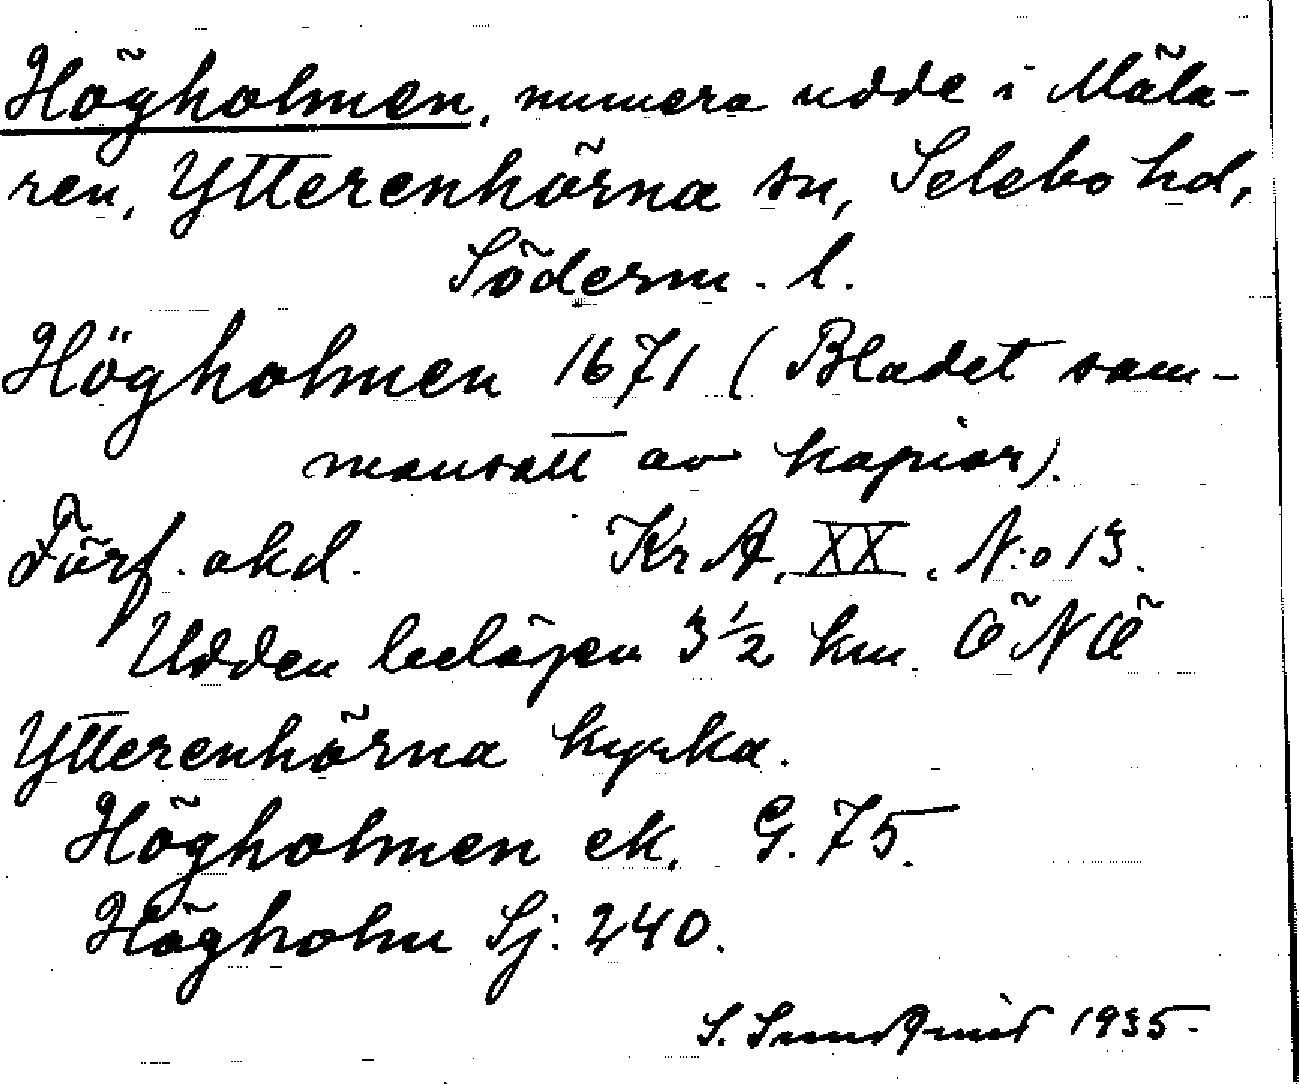 Högholmen, numera udde i Mäla-
ren, Ytterenhörna sn, Selebo hd,
Söderm. l.
Högholmen 1671 (Bladet sam-
mansatt av kopior).
Förf. okd. Kr A, XX, N:o 13.
Udden belägen 3 1/2 km. ÖNÖ
Ytterenhörna kyrka.
Högholmen ek. G. 75.
Högholm Sj. 240.
S. Sundqvist 1935.